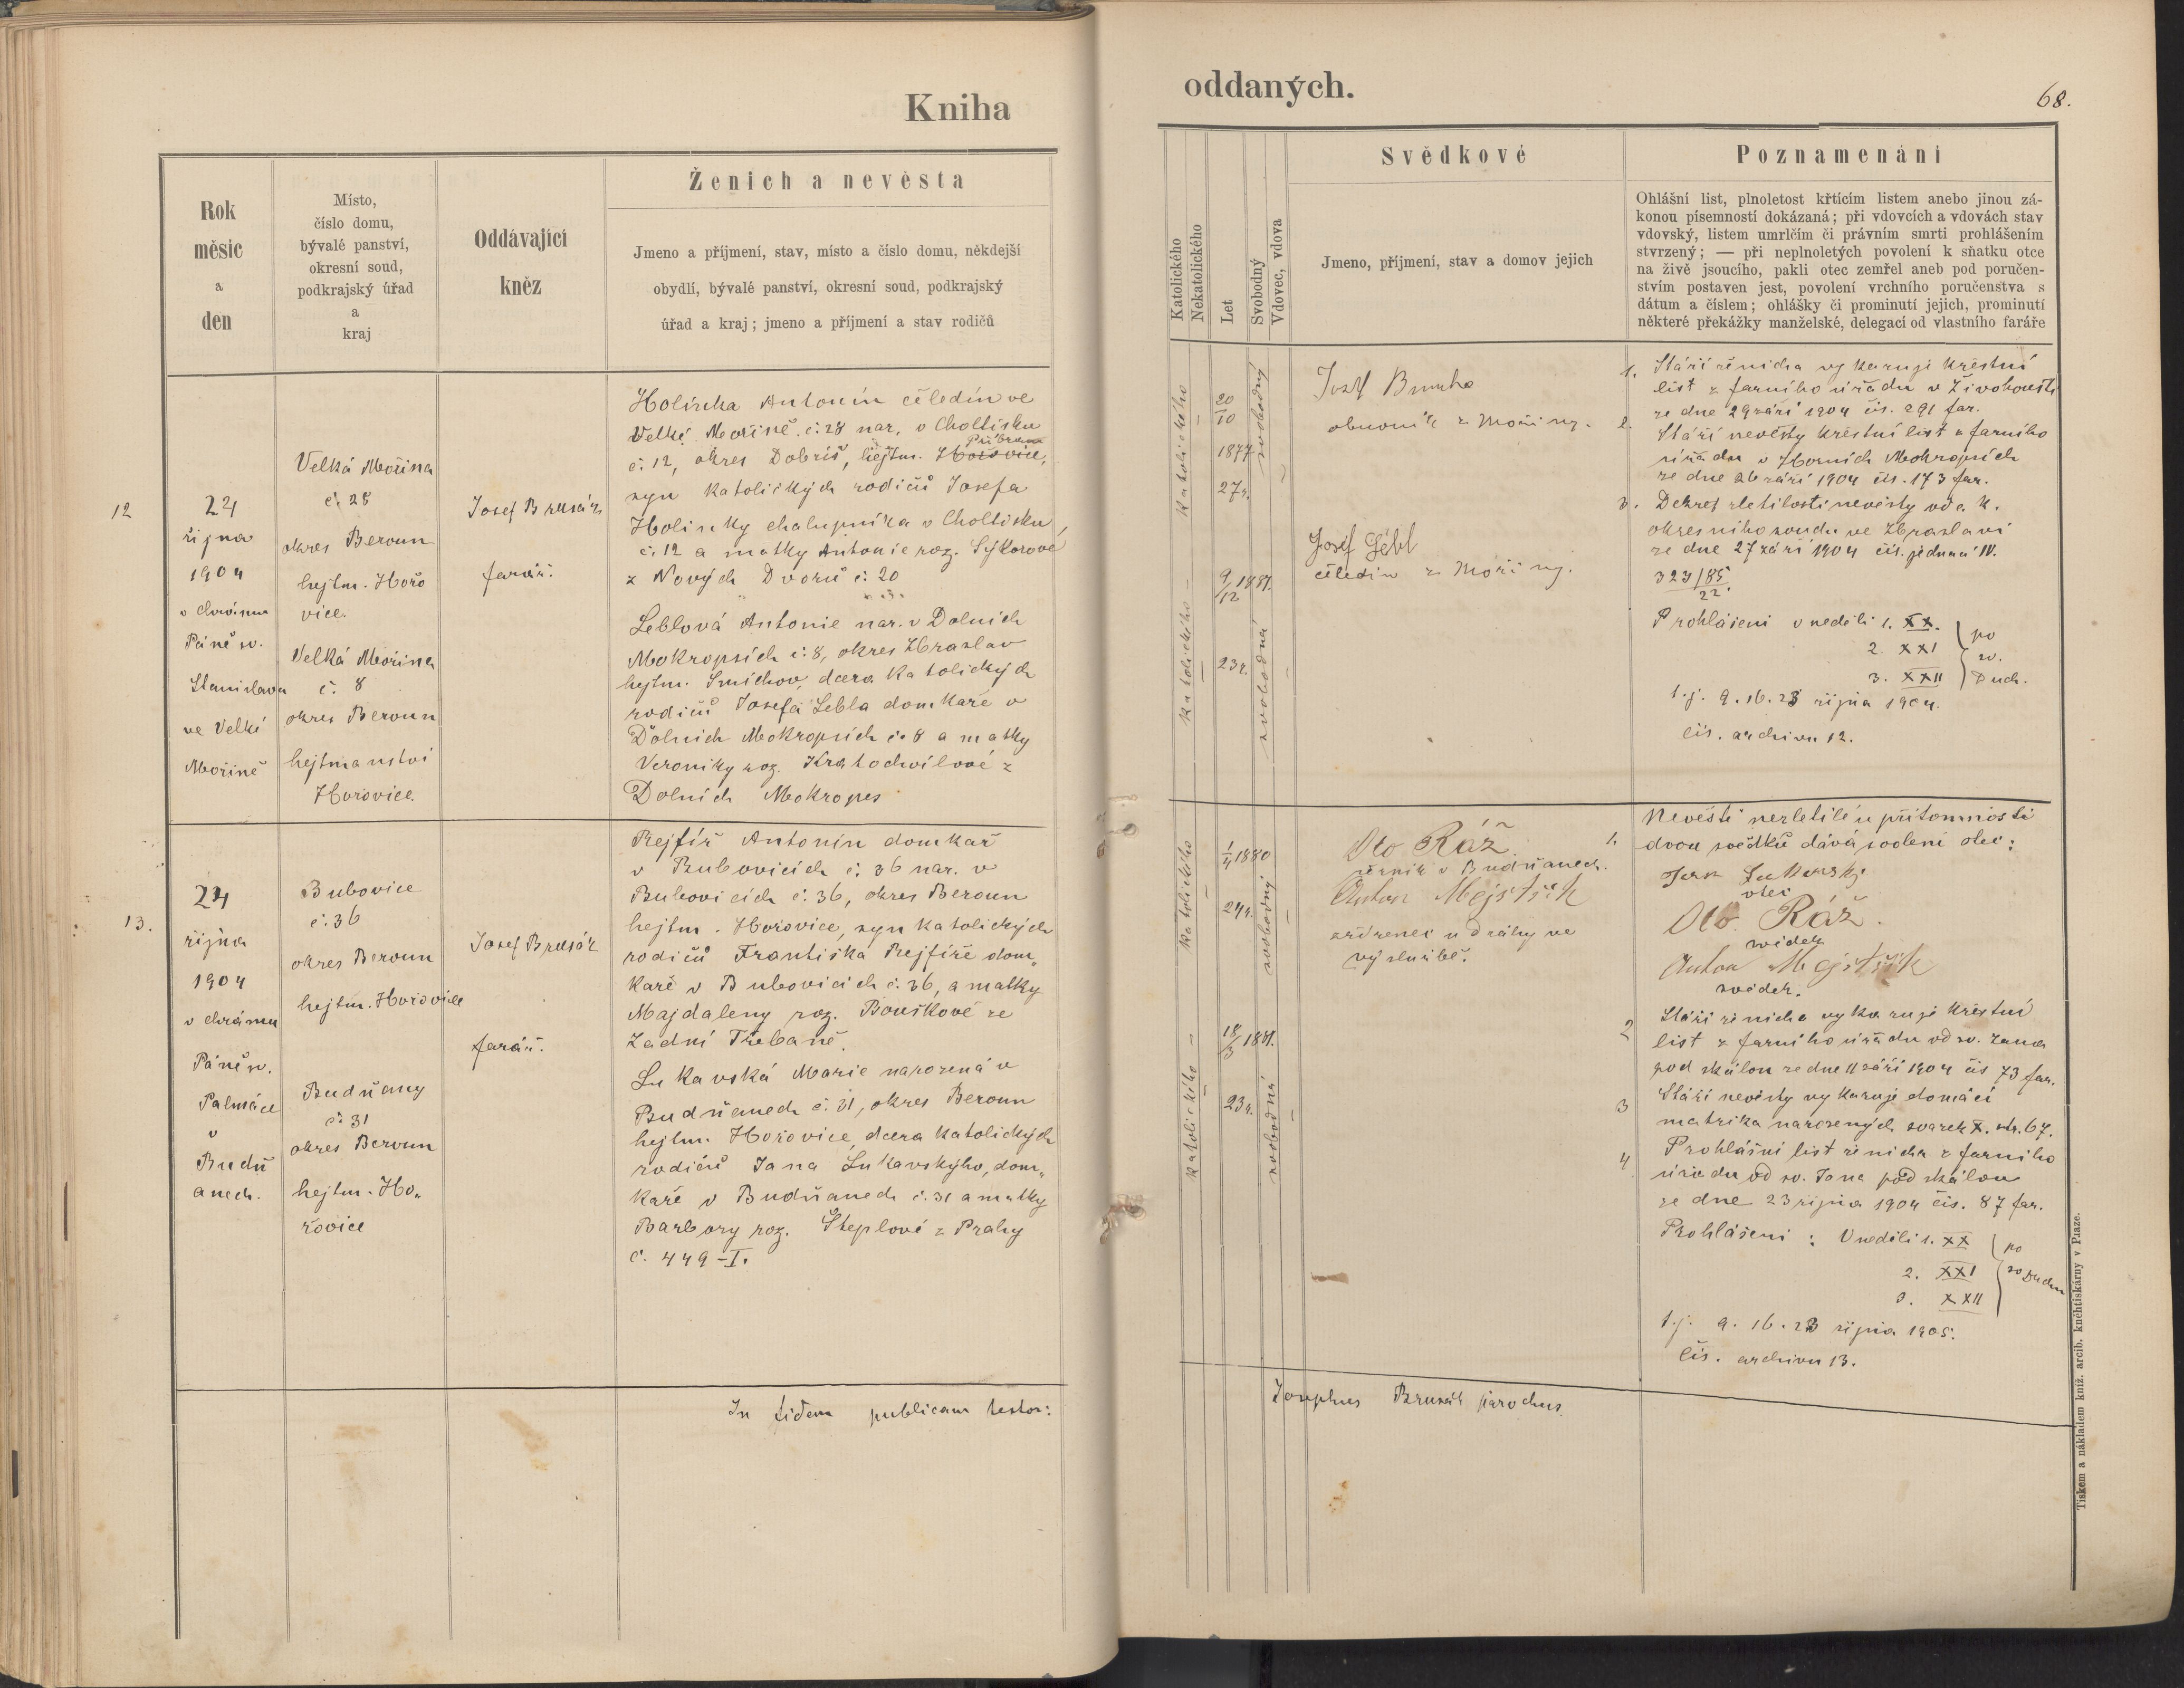 Kniha
oddaných.
68.
Rok
měsíc
a
den
Místo,
číslo domu,
bývalé panství,
okresní soud,
podkrajský úřad
a
kraj
Oddávající
kněz
Ženich a nevěsta
Jmeno a příjmení, stav, místo a číslo domu, někdejší
obydlí, bývalé panství, okresní soud, podkrajský
úřad a kraj; jmeno a příjmení a stav rodičů
Katolického
Nekatolického
Let
Svobodný
Vdovec, vdova
Svědkové
Jmeno, příjmení, stav a domov jejich
Poznamenání
Ohlášní list, plnoletost křtícím listem anebo jinou zá-
konou písemností dokázaná; při vdovcích a vdovách stav
vdovský, listem umrlčím či právním smrti prohlášením
stvrzený; — při neplnoletých povolení k sňatku otce
na živě jsoucího, pakli otec zemřel aneb pod poručen-
stvím postaven jest, povolení vrchního poručenstva s
dátum a číslem; ohlášky či prominutí jejich, prominutí
některé překážky manželské, delegací od vlastního faráře
12
24
října
1904
v chrámu
Páně sv.
Stanislava
ve Velké
Mořině
Velká Mořina
č. 28
okres Beroun
hejtm. Hořo
vice.
Velká Mořina
č. 8
okres Beroun
hejtmanství
Hořovice.
Josef Brusák
farář.
Holinka Antonín čeledín ve
Velké Mořině č. 28 nar. v Choltisku
Příbram
č. 12, okres Dobříš, hejtm. Hořovice,
syn katolických rodičů Josefa
Holinky chalupníka v Choltisku,
č. 12 a matky Antonie roz. Sýkorové
z Nových Dvorů č. 20
Leblová Antonie nar. v Dolních
Mokropsích č. 8, okres Zbraslav
hejtm. Smíchov, dcera katolických
rodičů Josefa Lebla domkaře v
Dolních Mokropsích č. 8 a matky
Veroniky roz. Kratochvílové z
Dolních Mokropes
katolického
20
10
1877
27r.
svobodný
katolického
9/12 1881.
23r.
svobodná
Josef
z Mořiny.
Josef Lébl
čeledín z Mořiny.
1. Stáří ženicha vykazuje křestní
list z farního úřadu v Živohousti
ze dne 29 září 1904 čís. 291 far.
2. Stáří nevěsty křestní list z farního
úřadu v Horních Mokropsích
ze dne 26 září 1904 čís. 173 far.
3. Dekret zletilosti nevěsty od c. k.
okresního soudu ve Zbraslavi
ze dne 27 září 1904 čís. jednací IV.
323/85
22.
Prohlášení v neděli 1. XX.
2. XXI
3. XXII
po
sv.
Duch.
t. j. 9. 16. 23 října 1904.
čís. archivu 12.
13.
24
října
1904
v chrámu
Páně sv.
Palmácia
v
Budň
anech.
Bubovice
č. 36
okres Beroun
hejtm. Hořovice
Budňany
č. 31
okres Beroun
hejtm. Ho„
řovice
Josef Brusák
farář.
Rejfíř Antonín domkář
v Bubovicích č. 36 nar. v
Bubovicích č. 36, okres Beroun
hejtm. Hořovice, syn katolických
rodičů Františka Rejfíře dom„
kaře v Bubovicích č. 36, a matky
Majdaleny roz. Bouškové ze
Zadní Třebaně.
Lukavská Marie narozená v
Budňanech č. 31, okres Beroun
hejtm. Hořovice, dcera katolických
rodičů Jana Lukavského, dom„
kaře v Budňanech č. 31 a matky
Barbory roz. Šteplové z Prahy
č. 449–I.
katolického
1/4 1880
24r.
svobodný
katolického
18/3 1881.
23r.
svobodná
Oto Ráž
v Budňanech.
Anton Mejstřík
zřízenec u dráhy ve
výslužbě.
1. Nevěstě nezletilé u přítomnosti
dvou svědků dává svolení otec:
Jan Lukavský
otec
Oto Ráž.
svědek
Anton Mejstřík
svědek.
2 Stáří ženicha vykazuje křestní
list z farního úřadu od sv. Jana
pod skálou ze dne 11 září 1904 čís 73 far.
3 Stáří nevěsty vykazuje domácí
matrika narozených svazek X. str. 67.
4 Prohlášní list ženicha z farního
úřadu od sv. Jana pod skálou
ze dne 23 října 1904 čís. 87 far.
Prohlášení: V neděli 1. XX
2. XXI
3. XXII
po
sv Duchu
t. j. 9. 16. 23 října 1905.
čís. archivu 13.
In fidem publicam testor:
Josephus Brusák parochus.
Tiskem a nákladem kníž. arcib. knihtiskárny v Praze.